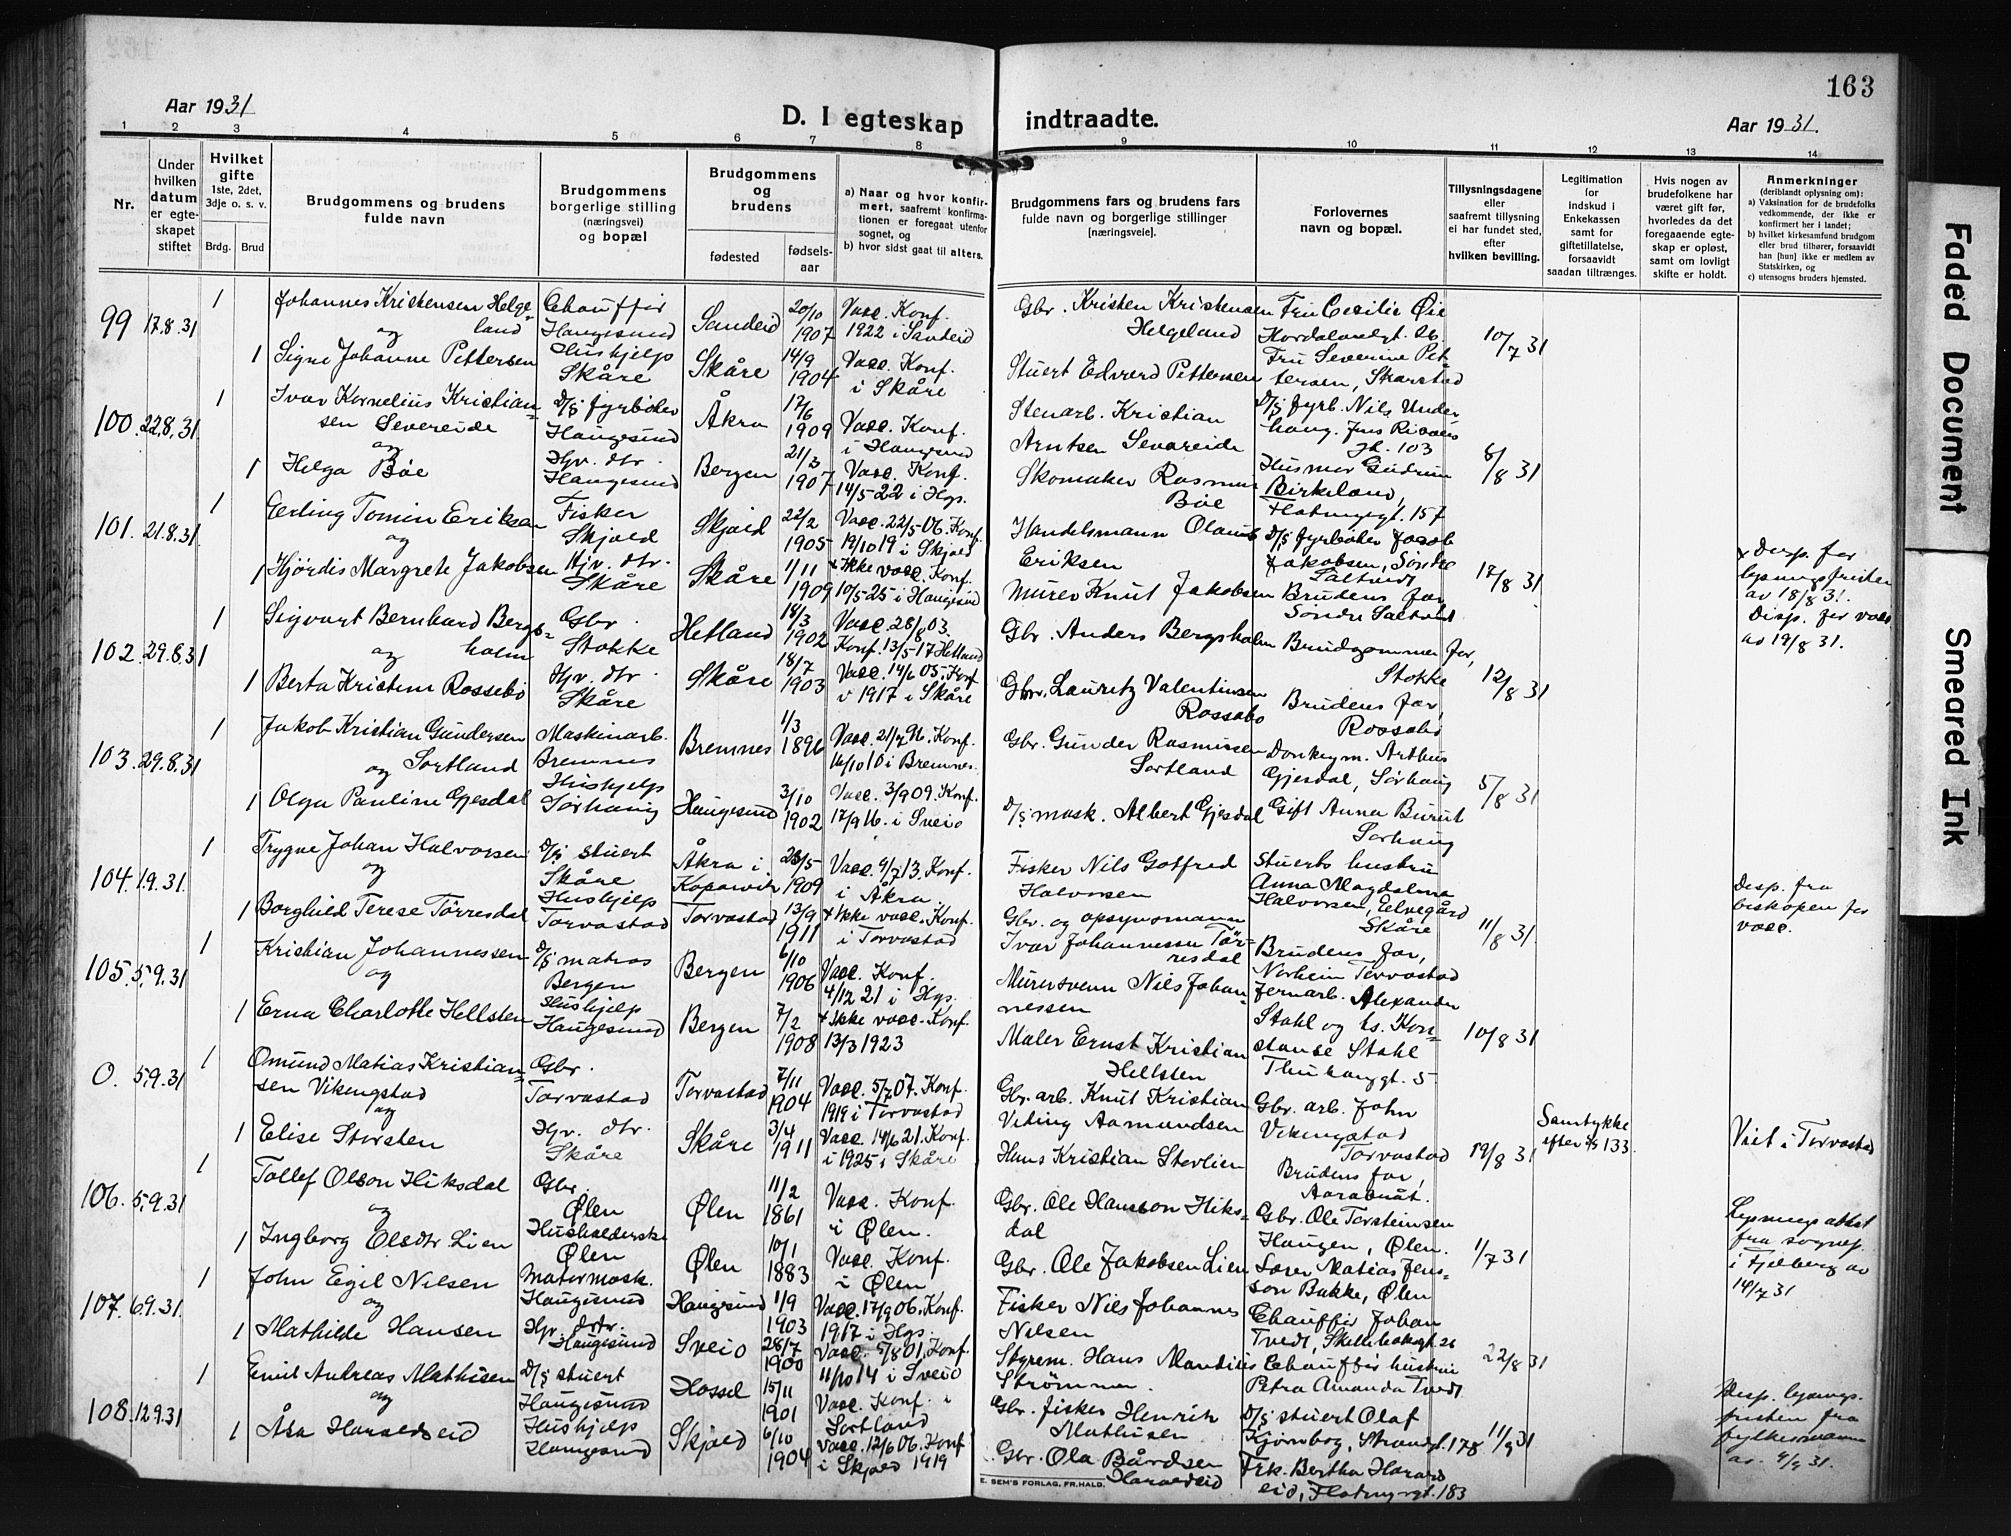 163
Aar 1931
D. I egteskap indtraadte.
Aar 1931.
1 2 3 4 5 6 7 8 9 10 11 12 13 14
Nr.
Under
hvilken
datum
er egte-
skapet
stiftet
Hvilket
gifte
1ste, 2det,
3dje o. s. v.
Brdg. Brud
Brudgommens og brudens
fulde navn
Brudgommens
borgerlige stilling
(næringsvei)
og bopæl
Brudgommens
og
brudens
fødested
fødsels-
aar
a) Naar og hvor konfir-
mert, saafremt konfirma-
tionen er foregaat utenfor
sognet, og
b) hvor sidst gaat til alters.
Brudgommens fars og brudens fars
fulde navn og borgerlige stillinger
[næringsveie].
Forlovernes
navn og bopæl.
Tillysningsdagene
eller
saafremt tillysning
ei har fundet sted,
efter
hvilken bevilling.
Legitimation
for
indskud i
Enkekassen
samt for
giftetillatelse,
forsaavidt
saadan tiltrænges.
Hvis nogen av
brudefolkene har
været gift før,
hvorledes da det
foregaaende egte-
skap er opløst,
samt om lovligt
skifte er holdt.
Anmerkninger
(deriblandt oplysning om):
a) Vaksination for de brudefolks
vedkommende, der ikke er
konfirmert her i landet;
b) hvilket kirkesamfund brudgom
eller brud tilhører, forsaavidt
han [hun] ikke er medlem av
Statskirken, og
c) utensogns bruders hjemsted.
99 17.8.31 1 Johannes Kristensen Helge-
land og
Chauffør
Haugesund
Sandeid 20/10 1907
Vacc. Konf.
1922 i Sandeid
Gbr. Kristen Kristensen
Helgeland
Fru Cecilie Øie
Hordalandgt.
10/7 31
1 Signe Johanne Pettersen
Hushjelp
Skåre
Skåre 14/9 1904
Vacc. Konf.
i Skåre
Stuert Edvard Pettersen
Fru Severine Pet-
tersen, Skarstad
100. 22.8.31 1 Ivar Kornelius Kristian-
sen Severeide
og
D/s fyrbøter
Haugesund
Åkra 17/6 1909
Vacc. Konf.
i Haugesund
Stenarb. Kristian
Arntsen Sevareide
D/s fyrb. Nils Under-
haug. Jens Risøens
gt. 103
8/8 31
1 Helga Bøe
Hjv. dtr.
Haugesund
Bergen 21/3 1907
Vacc. Konf.
14/5 22 i Hgs.
Skomaker Rasmus
Bøe
Husmor Gudrun
Birkeland,
Flotmyrgt. 157
101. 21.8.31 1 Erling Tomin Eriksen
og
Fisker
Skjold
Skjold 22/2 1905
Vacc. 22/5-06. Konf.
19/10 19 i Skjold
Handelsmann Olaus
Eriksen
D/s fyrbøter Jacob
Jakobsen, Søndre
Saltveit
17/8 31
x Disp. for
lysningsfristen
av 18/8 31.
Disp. for vacc.
av 19/8 31.
1 Hjørdis Margrete Jakobsen
Hjv. dtr.
Skåre
Skåre 1/11 1909
x Ikke vacc. Konf.
10/5-25 i Haugesund
Murer Knut Jakobsen
Brudens far
Søndre Saltveit
102. 29.8.31 1 Sigvart Bernhard Bergs-
holm
og
Gbr.
Stokke
Hetland 18/3 1902
Vacc. 28/8 03.
Konf. 13/5-17 Hetland
Gbr. Anders Bergsholm
Brudgommens far,
Stokke
12/8 31
1 Berta Kristine Rossebø
Hjv. dtr.
Skåre
Skåre 18/7 1903
Vacc. 14/6 05. Konf.
v 1917 i Skåre
Gbr. Lauritz Valentinsen
Rossebø
Brudens far,
Rossebø
103. 29.8.31 1 Jakob Kristian Gundersen
og Sortland
Maskinarb.
Bremnes
Bremnes 1/3 1896
Vacc. 21/7 96. Konf.
16/10 10 i Bremnes.
Gbr. Gunder Rasmussen
Sortland
Donkeym. Arthur
Gjesdal, Sørhaug
5/8 31
1 Olga Pauline Gjesdal
Hushjelp
Sørhaug
Haugesund 3/10 1902
Vacc. 3/9 09. Konf.
17/9 16. i Sveio
D/s mask. Albert Gjesdal
Gift Anna
Sørhaug
104. 1.9.31. 1 Trygve Johan Halvorsen
og
D/s stuert
Skåre
Åkra i
Kopervik 23/5 1909
Vacc. 9/7 13. Konf.
i Åkra.
Fisker Nils Gotfred
Halvorsen
Stuerts hustru
Anna Magdalena
Halvorsen, Eivegård
Skåre
11/8 31.
Disp. fra
biskopen for
vacc.
1 Borghild Terese Tørresdal
Hushjelp
Torvastad
Torvastad 13/9 1911
x Ikke vacc. Konf.
i Torvastad
Gbr. og opsynsmann
Ivar Johannessen Tør-
resdal
Brudens far,
Norheim Torvastad
105. 5.9.31 1 Kristian Johannessen
og
D/s matros
Bergen
Bergen 6/10 1906
Vacc. Konf.
4/12 21 i Hgs.
Murersvenn Nils Johan-
nessen
Jernarb. Alexander
Stahl og hs. Kon-
stanse Stahl
Thuhauggt. 5
10/8 31
1 Erna Charlotte Hellsten
Hushjelp
Haugesund
Bergen 7/2 1908
x Ikke vacc. Konf.
13/3 1923
Maler Ernst Kristian
Hellsten
0. 5.9.31 1 Omund Matias Kristian-
sen Vikingstad
og
Gbr.
Torvastad
Torvastad 7/11 1904
Vacc. 5/7 07. Konf.
1919 i Torvastad
Gbr. arb. Knut Kristian
Viking Aamundsen
Gbr. arb. John
Vikingstad
Torvastad
19/8 31
Samtykke
efter §133.
Viet i Torvastad
1 Elise Storsten
Hjv. dtr.
Skåre
Skåre 3/4 1911
Vacc. 14/6 21. Konf.
i 1925 i Skåre
Hans Kristian
Brudens far,
106. 5.9.31 1 Tollef Olson Hiksdal
og
Gbr.
Ølen
Ølen 11/2 1861
Vacc. Konf.
i Ølen.
Gbr. Ole Hansson Hiks-
dal
Gbr. Ole Torsteinsen
Haugen, Ølen.
1/7 31
Lysningsattest
fra sognep.
i Fjelberg av
14/7 31
1 Ingborg Olsdtr. Lien
Husholderske
Ølen
Ølen 10/1 1883
Vacc. Konf.
i Ølen
Gbr. Ole Jakobsen Lien
Lærer Matias Jens-
son Bakke, Ølen
107. 6.9.31. 1 John Egil Nilsen
og
Motormask.
Haugesund
Haugesund 1/9 1903
Vacc. 17/9 06. Konf.
1917 i Hgs.
Fisker Nils Johannes
Nilsen
Chauffør Johan
Tvedt, Skillebekgt. 26
22/8 31
1 Mathilde Hansen
Hjv. dtr.
Haugesund
Sveio 28/7 1900
Vacc. 5/8 01. Konf.
11/10 14 i Sveio
Styrem. Hans Mandius
Strømmen.
Chauffør hustru
Petra Amanda Tvedt
108. 12.9.31 1 Emil Andreas Mathisen
og
D/s stuert
Haugesund
Hassel 15/11 1901
Vacc. Konf. i
Sortland
Gbr. fisker Henrik
Mathisen
D/s stuert Olaf
Kjørnbog, Strandgt. 178
11/9 31
Disp. lysnings-
fristen fra
fylkesmannen
av 4/9 31.
1 Åsa Haraldseid
Hushjelp
Haugesund
Skjold 6/10 1904
Vacc. 12/6 06. Konf.
i Skjold 1919
Gbr. Ola Bårdsen
Haraldseid
Frk. Bertha Harald-
eid, Flotmyrgt. 183
E. SEM'S FORLAG, FR.HALD.
Faded Document Smeared Ink